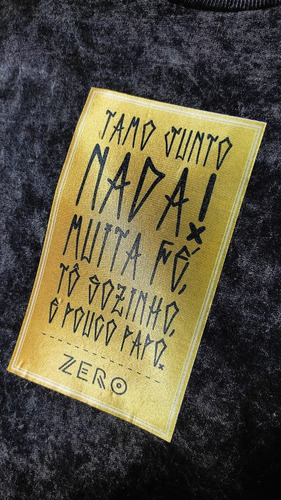 TAMO JUNTO
NADA!
MUITA FÉ,
TÔ SOZINHO,
E POUCO PAPO.
ZERO